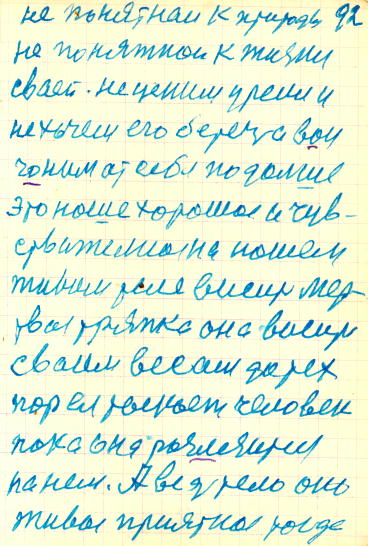 не понятнои к природы 92
не понятнои к жизни
своей. не ценим время и
не хочем его беречь а вои
чоним от себя подолшие
Это наше хорошое и чув-
ствително на нашем
живым теле висит мер-
твая тряпка она висит
своим весом до тех
пор ея таскает человек
пока она разлезится
на нем. А ведь тело оно
живое приятное когда